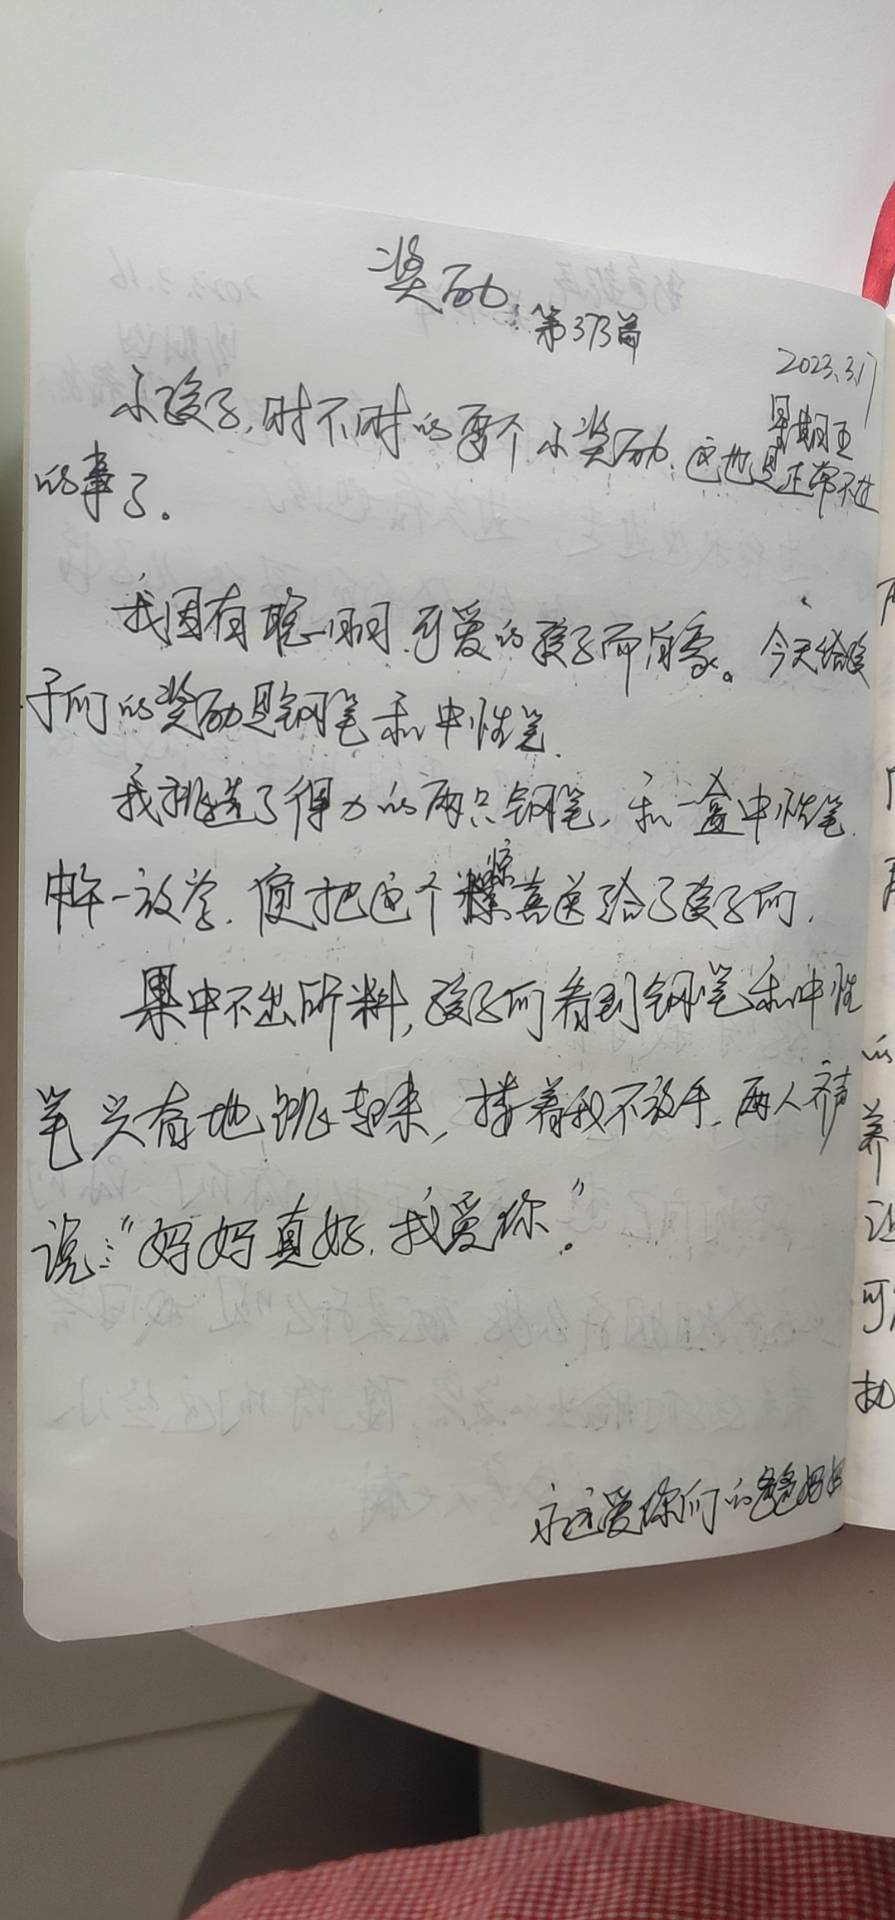 奖励
第373篇
2023.3.17
星期五
小孩子,时不时的要个小奖励,这也是正常不过
的事了。
我因有聪明可爱的孩子而自豪。今天给孩
子们的奖励是钢笔和中性笔.
我挑选了得力的两只钢笔,和一盒中性笔.
中午一放学,便把这个惊喜送给了孩子们.
果中不出所料,孩子们看到钢笔和中性
笔兴奋地跳起来,搂着我不放手,两人齐声
说:“妈妈真好,我爱你。”
永远爱你们的爸爸妈妈